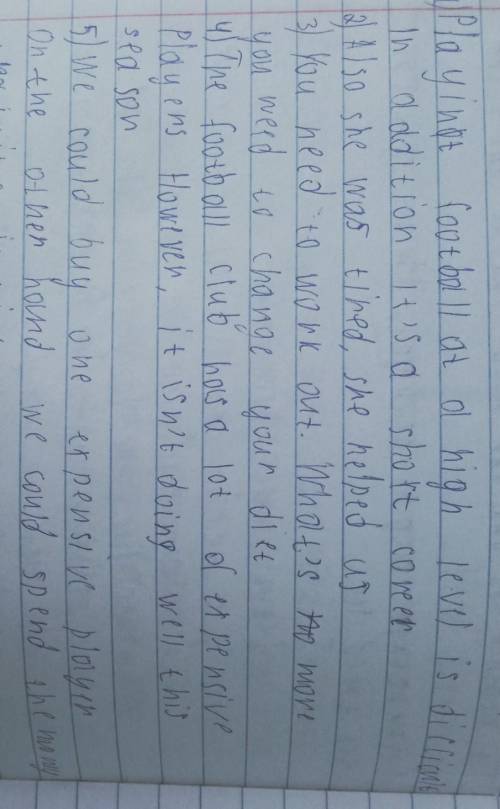 1) Playing football at a high level is difficult
In addition it's a short career
2) Also she was tired, she helped us
3) You need to work out. What's more
you need to change your diet
4) The football club has a lot of expensive
players However, it isn't doing well this
season
5) We could buy one expensive player
On the other hand we could spend the money